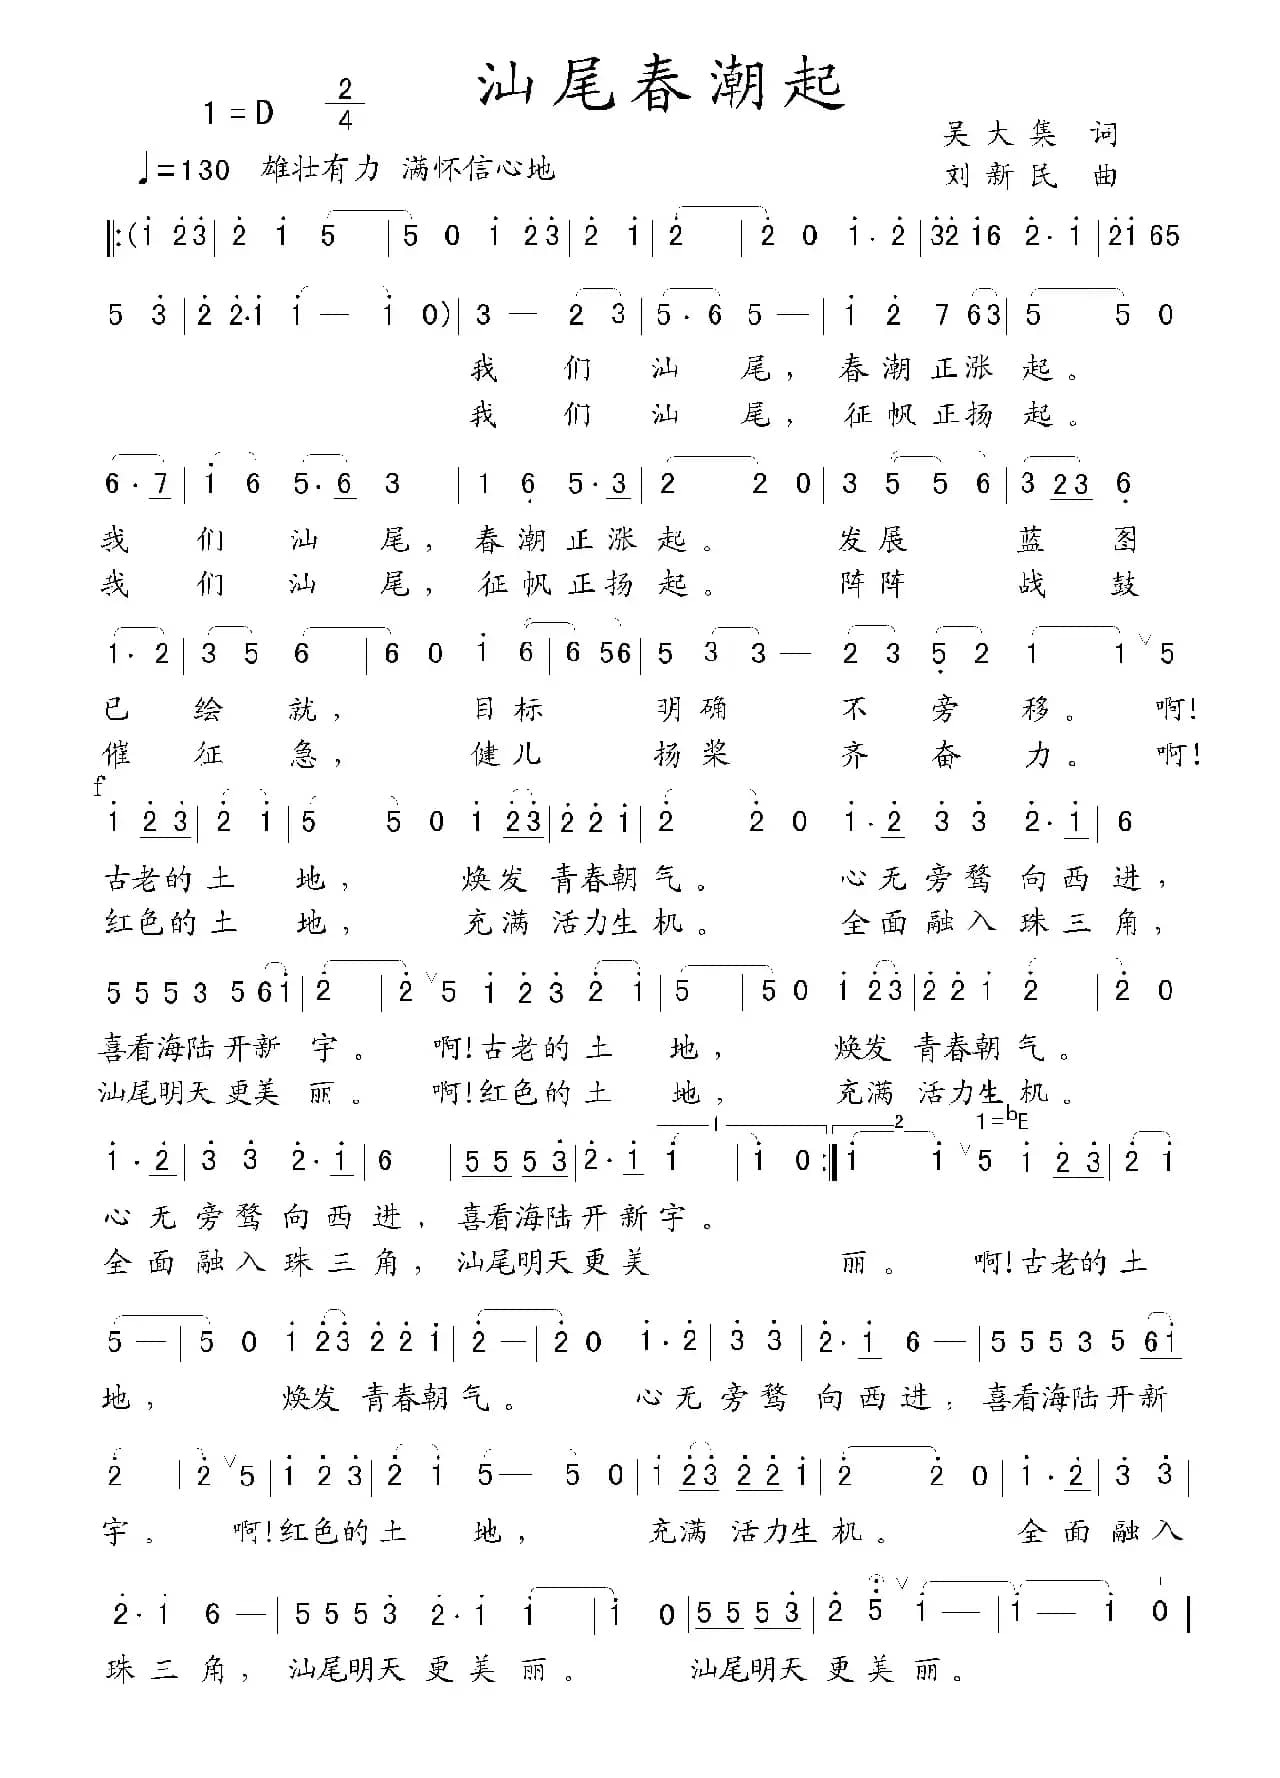 汕尾春潮起
1=D 2/4
吴大集 词
♩=130 雄壮有力 满怀信心地
刘新民 曲
‖:(i 2̇3̇ | 2̇ i 5 | 5 0 i 2̇3̇ | 2̇ i | 2̇ | 2̇ 0 i· 2̇ | 3̇2̇ i6 2̇· i | 2̇i 65
5 3̇ | 2̇ 2̇·i i — i 0) | 3 — 2 3 | 5·6 5 — | i 2̇ 7 63 | 5 5 0
我 们 汕 尾， 春潮正涨 起。
我 们 汕 尾， 征帆正扬 起。
6·7 | i 6 5·6 3 | 1 6̣ 5·3 | 2 2 0 | 3 5 5 6 | 3 23 6̣
我 们 汕 尾， 春潮正涨 起。 发展 蓝 图
我 们 汕 尾， 征帆正扬 起。 阵阵 战 鼓
1·2 | 3 5 6 | 6 0 i 6 | 6 56 | 5 3 3 — | 2 3 5̣ 2 | 1 1 ∨ 5
已 绘 就， 目标 明确 不 旁 移。 啊！
催 征 急， 健儿 扬桨 齐 奋 力。 啊！
f
i 2̇3̇ | 2̇ i | 5 5 0 i 2̇3̇ | 2̇ 2̇ i | 2̇ 2̇ 0 | i· 2̇ 3̇ 3̇ | 2̇· i | 6
古老的土 地， 焕发 青春朝气。 心无旁骛 向西进，
红色的土 地， 充满 活力生机。 全面融入 珠三角，
5 5 5 3 5 6i | 2̇ | 2̇ ∨ 5 i 2̇ 3̇ 2̇ i | 5 5 0 | i 2̇3̇ | 2̇ 2̇ i 2̇ | 2̇ 0
喜看海陆开新 宇。 啊！古老的土 地， 焕发 青春朝气。
汕尾明天更美 丽。 啊！红色的土 地， 充满 活力生机。
1 2 1=bE
i· 2̇ | 3̇ 3̇ 2̇· i | 6 | 5 5 5 3̇ | 2̇· i i | i 0 :‖ i i ∨ 5 i 2̇3̇ | 2̇ i
心无旁骛向西进，喜看海陆开新宇。
全面融入珠三角，汕尾明天更美 丽。 啊！古老的土
5 — | 5 0 i 2̇3̇ 2̇ 2̇ i | 2̇ — | 2̇ 0 i· 2̇ | 3̇ 3̇ | 2̇· i 6 — | 5 5 5 3 5 6i
地， 焕发 青春朝气。 心无旁骛 向西进，喜看海陆开新
2̇ | 2̇ ∨ 5 | i 2̇ 3̇ | 2̇ i 5 — 5 0 | i 2̇3̇ 2̇ 2̇ i | 2̇ 2̇ 0 | i· 2̇ | 3̇ 3̇ |
宇。 啊！红色的土 地， 充满 活力生机。 全面融入
2̇· i 6 — | 5 5 5 3̇ 2̇· i i | i 0 | 5 5 5 3̇ | 2̇ 5̇ ∨ i — | i — i 0 ‖
珠三角， 汕尾明天更美丽。 汕尾明天更美丽。